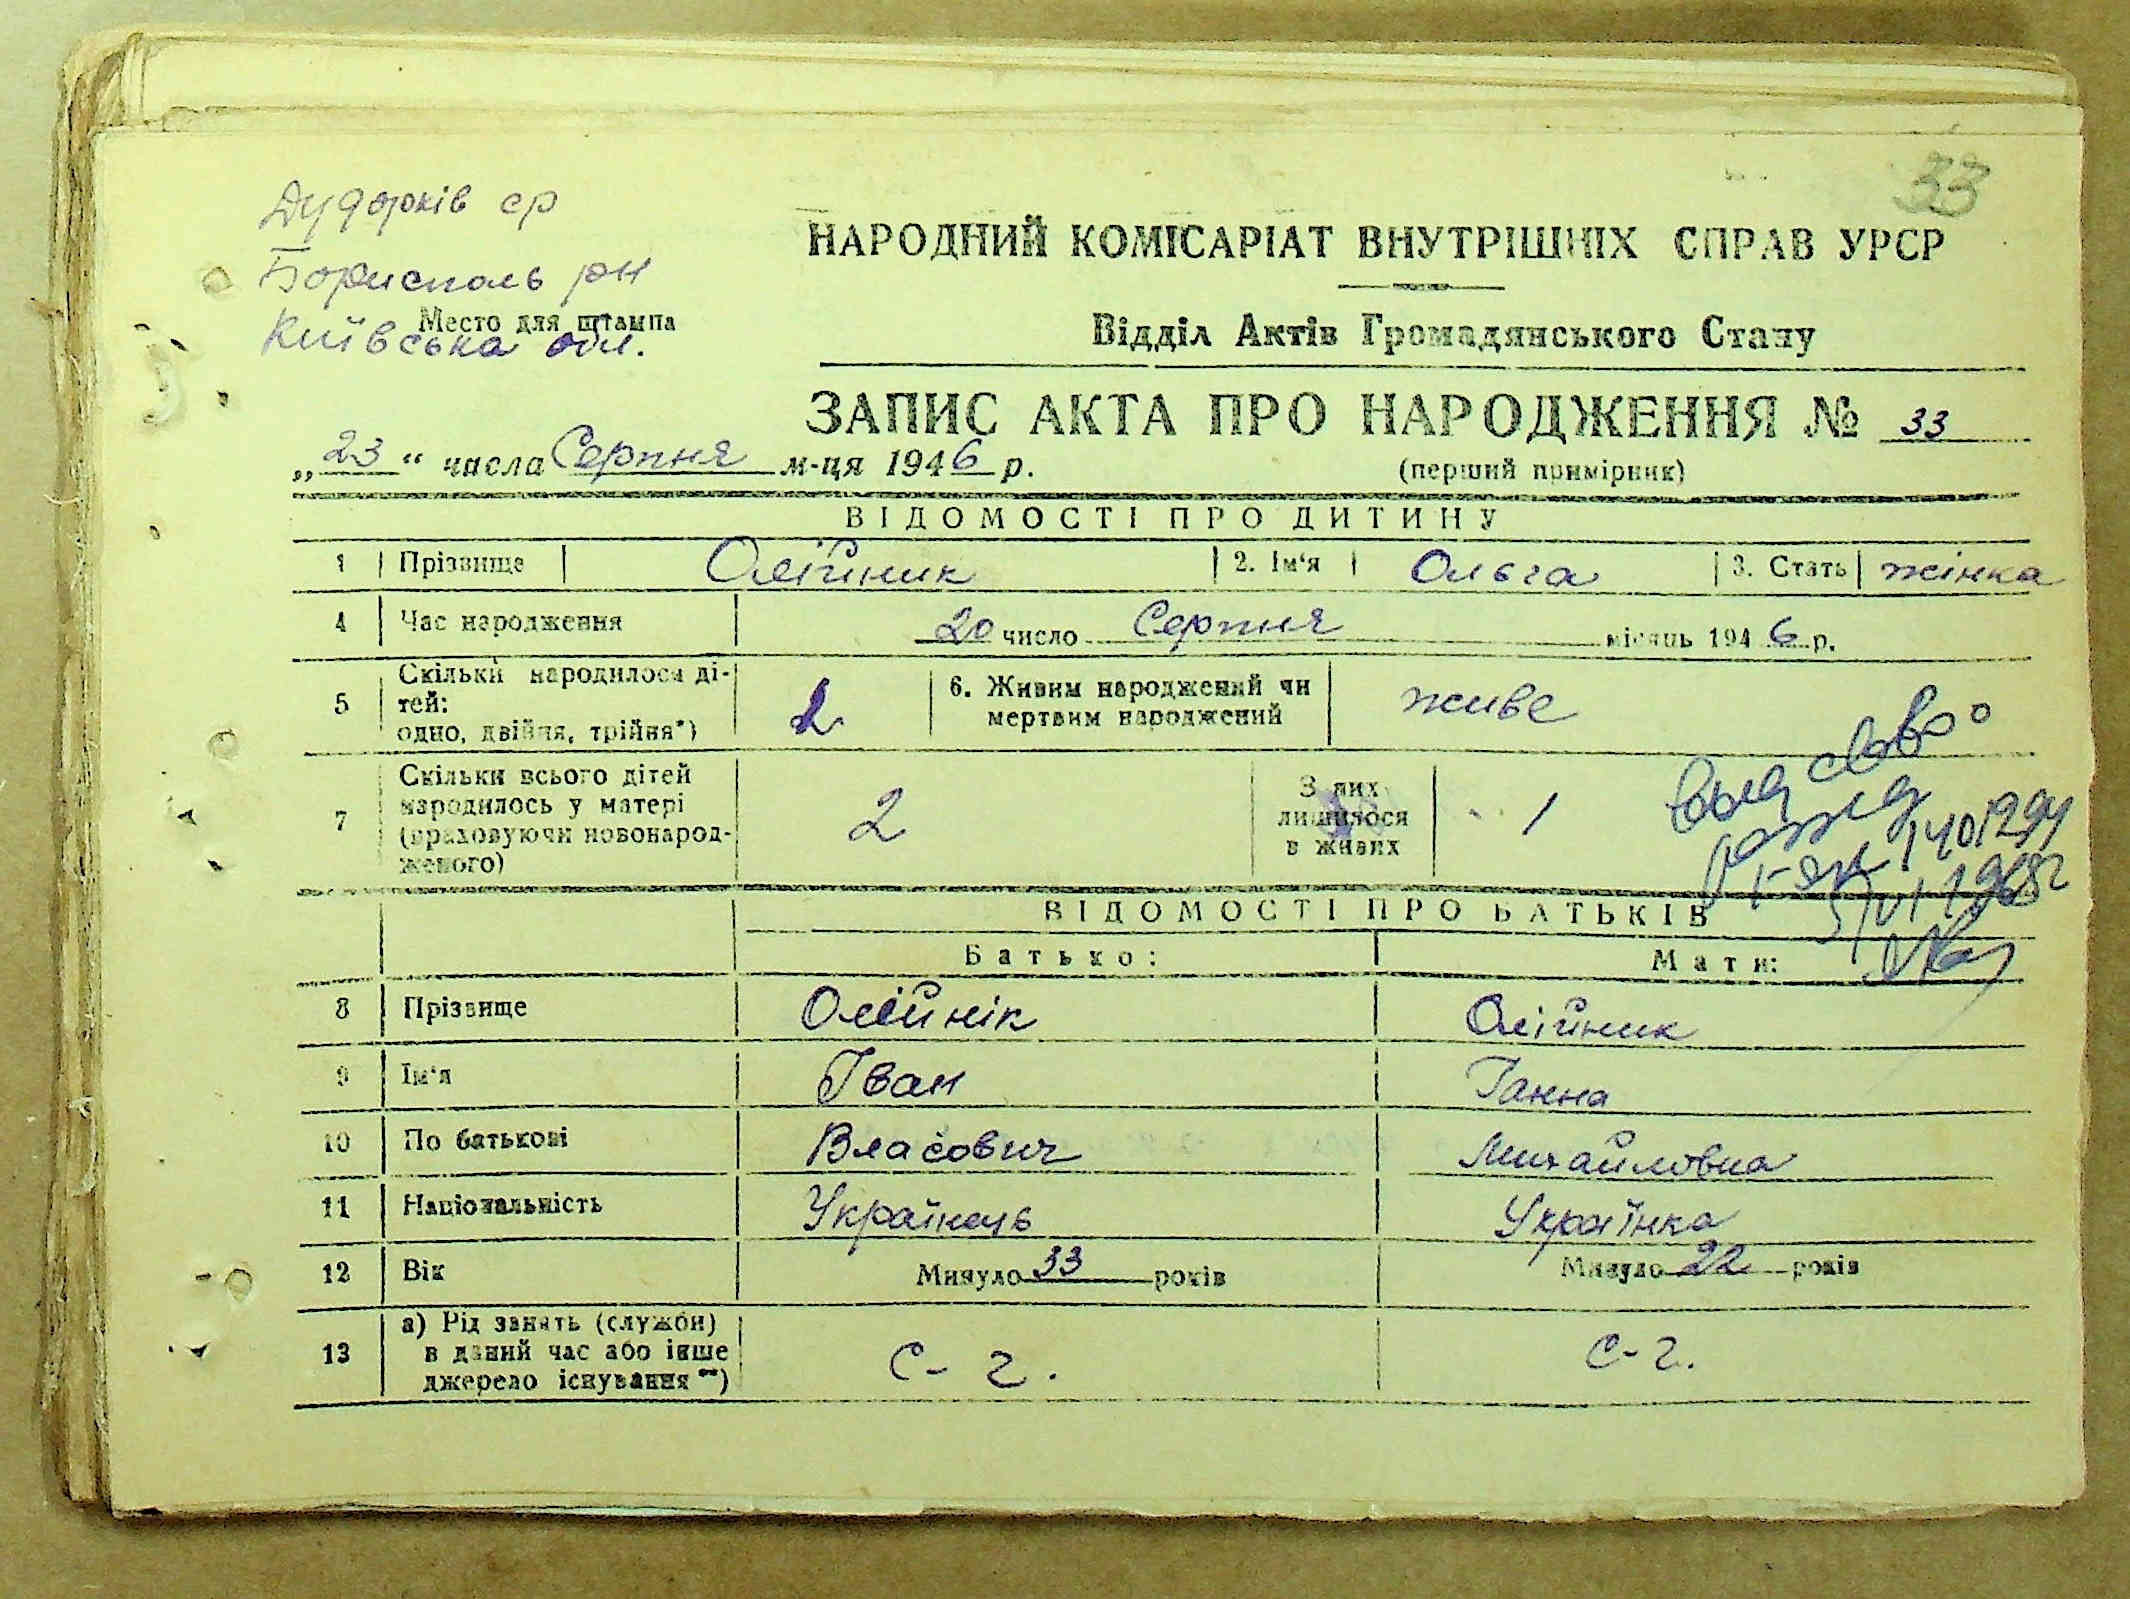 33
Дударків ср
Бориспаль рн
Київська обл.
Место для штампа
НАРОДНИЙ КОМІСАРІАТ ВНУТРІШНІХ СПРАВ УРСР
Відділ Актів Громадянського Стану
ЗАПИС АКТА ПРО НАРОДЖЕННЯ № 33
„23“ числа Серпня м-ця 1946 р.
(перший примірник)
ВІДОМОСТІ ПРО ДИТИНУ
1 Прізвище Олійник 2. Ім‘я Ольга 3. Стать жінка
4 Час народження 20 число Серпня місяць 1946 р.
5 Скільки народилося ді-
тей:
одно, двійня, трійня*)
2
6. Живим народжений чи
мертвим народжений
живе
7 Скільки всього дітей
народилось у матері
(враховуючи новонарод-
женого)
2
З них
лишилося
в живих
1
ВІДОМОСТІ ПРО БАТЬКІВ
Батько: Мати:
8 Прізвище Олійнік Олійник
9 Ім‘я Іван Ганна
10 По батькові Власович Михайловна
11 Національність Українець Українка
12 Вік Минуло 33 років Минуло 22 років
13 а) Рід занять (служби)
в даний час або інше
джерело існування **)
С-г. С-г.